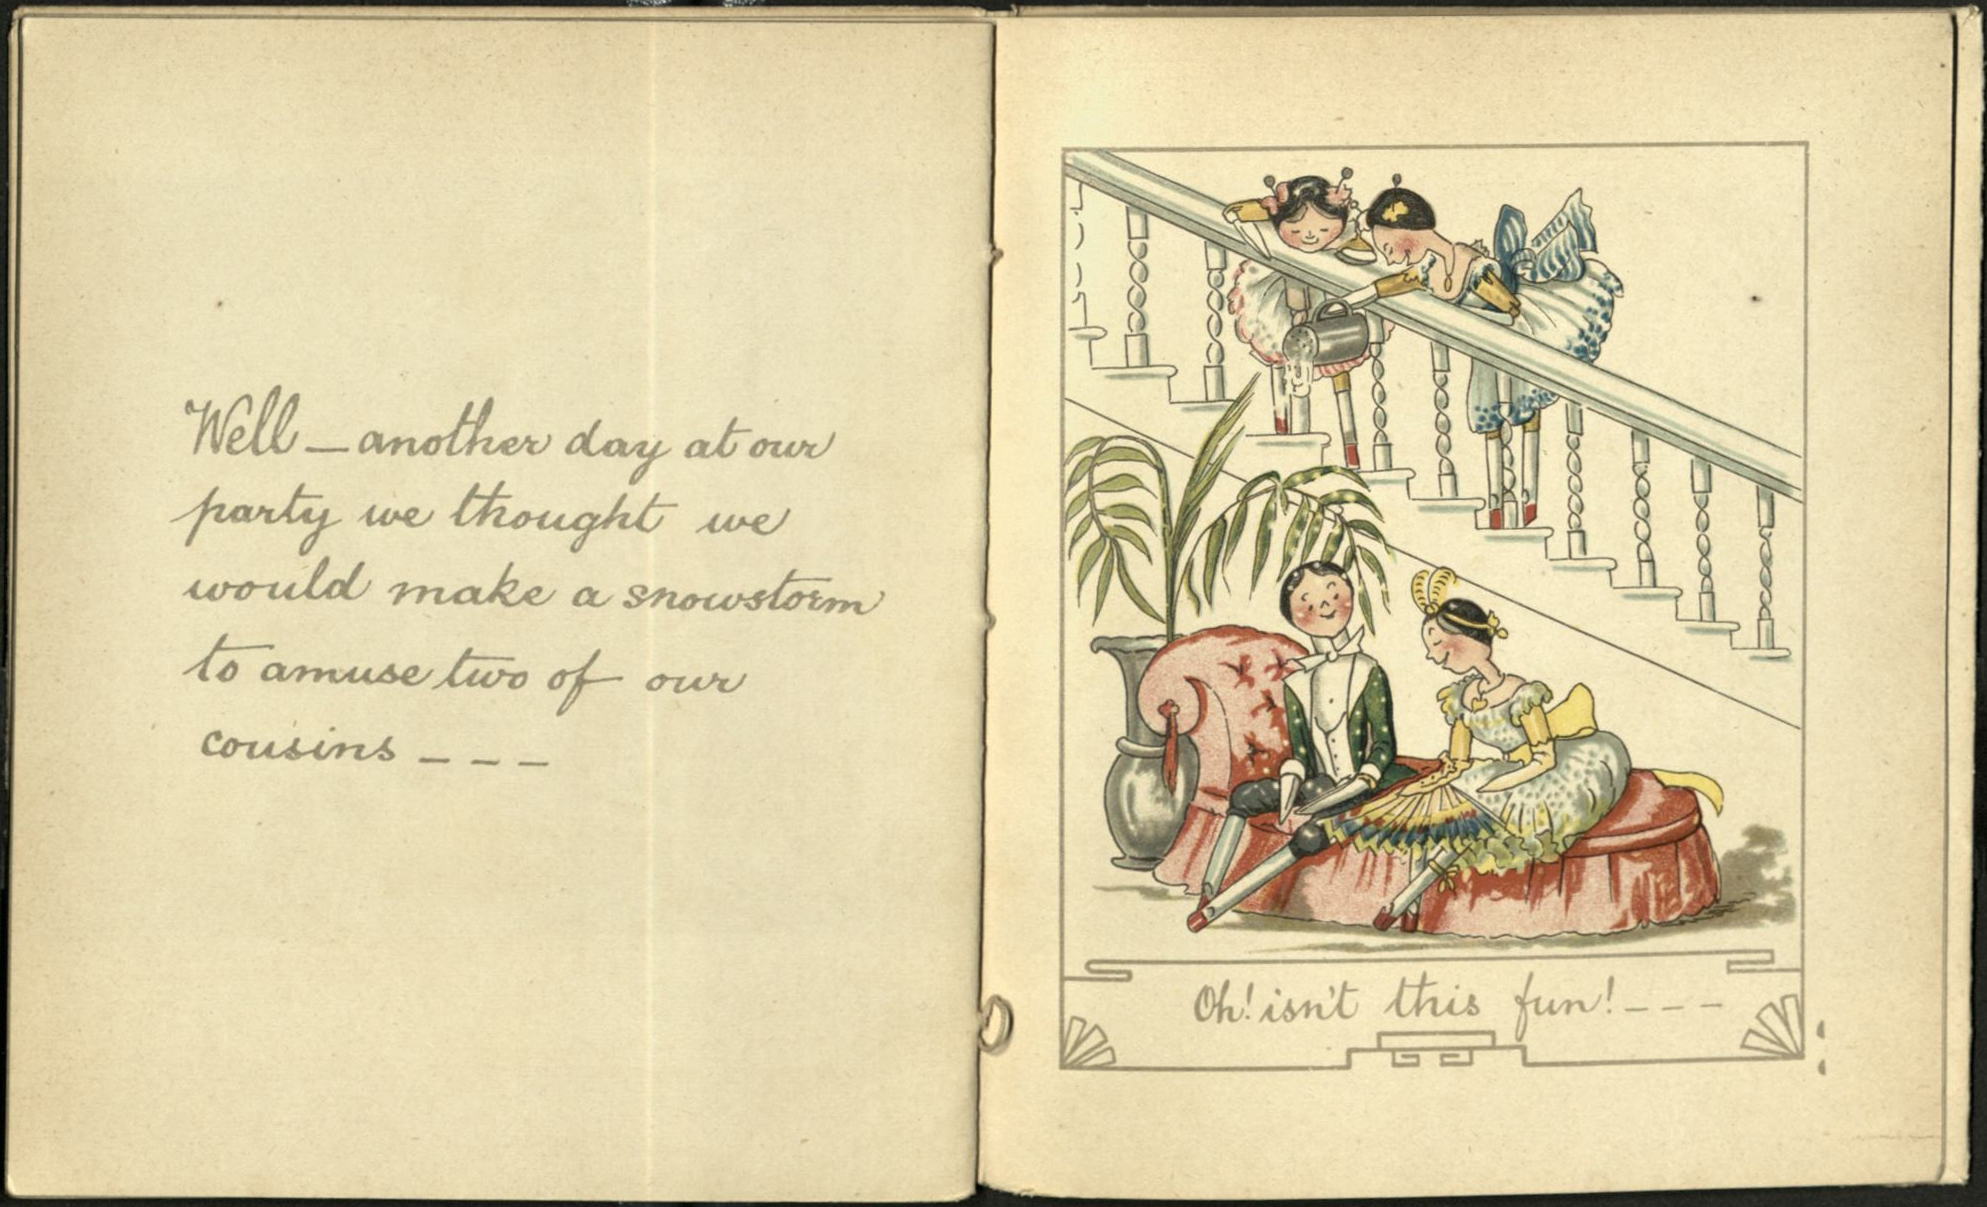 Well — another day at our
party we thought we
would make a snowstorm
to amuse two of our
cousins _ _ _
Oh! isn't this fun! _ _ _